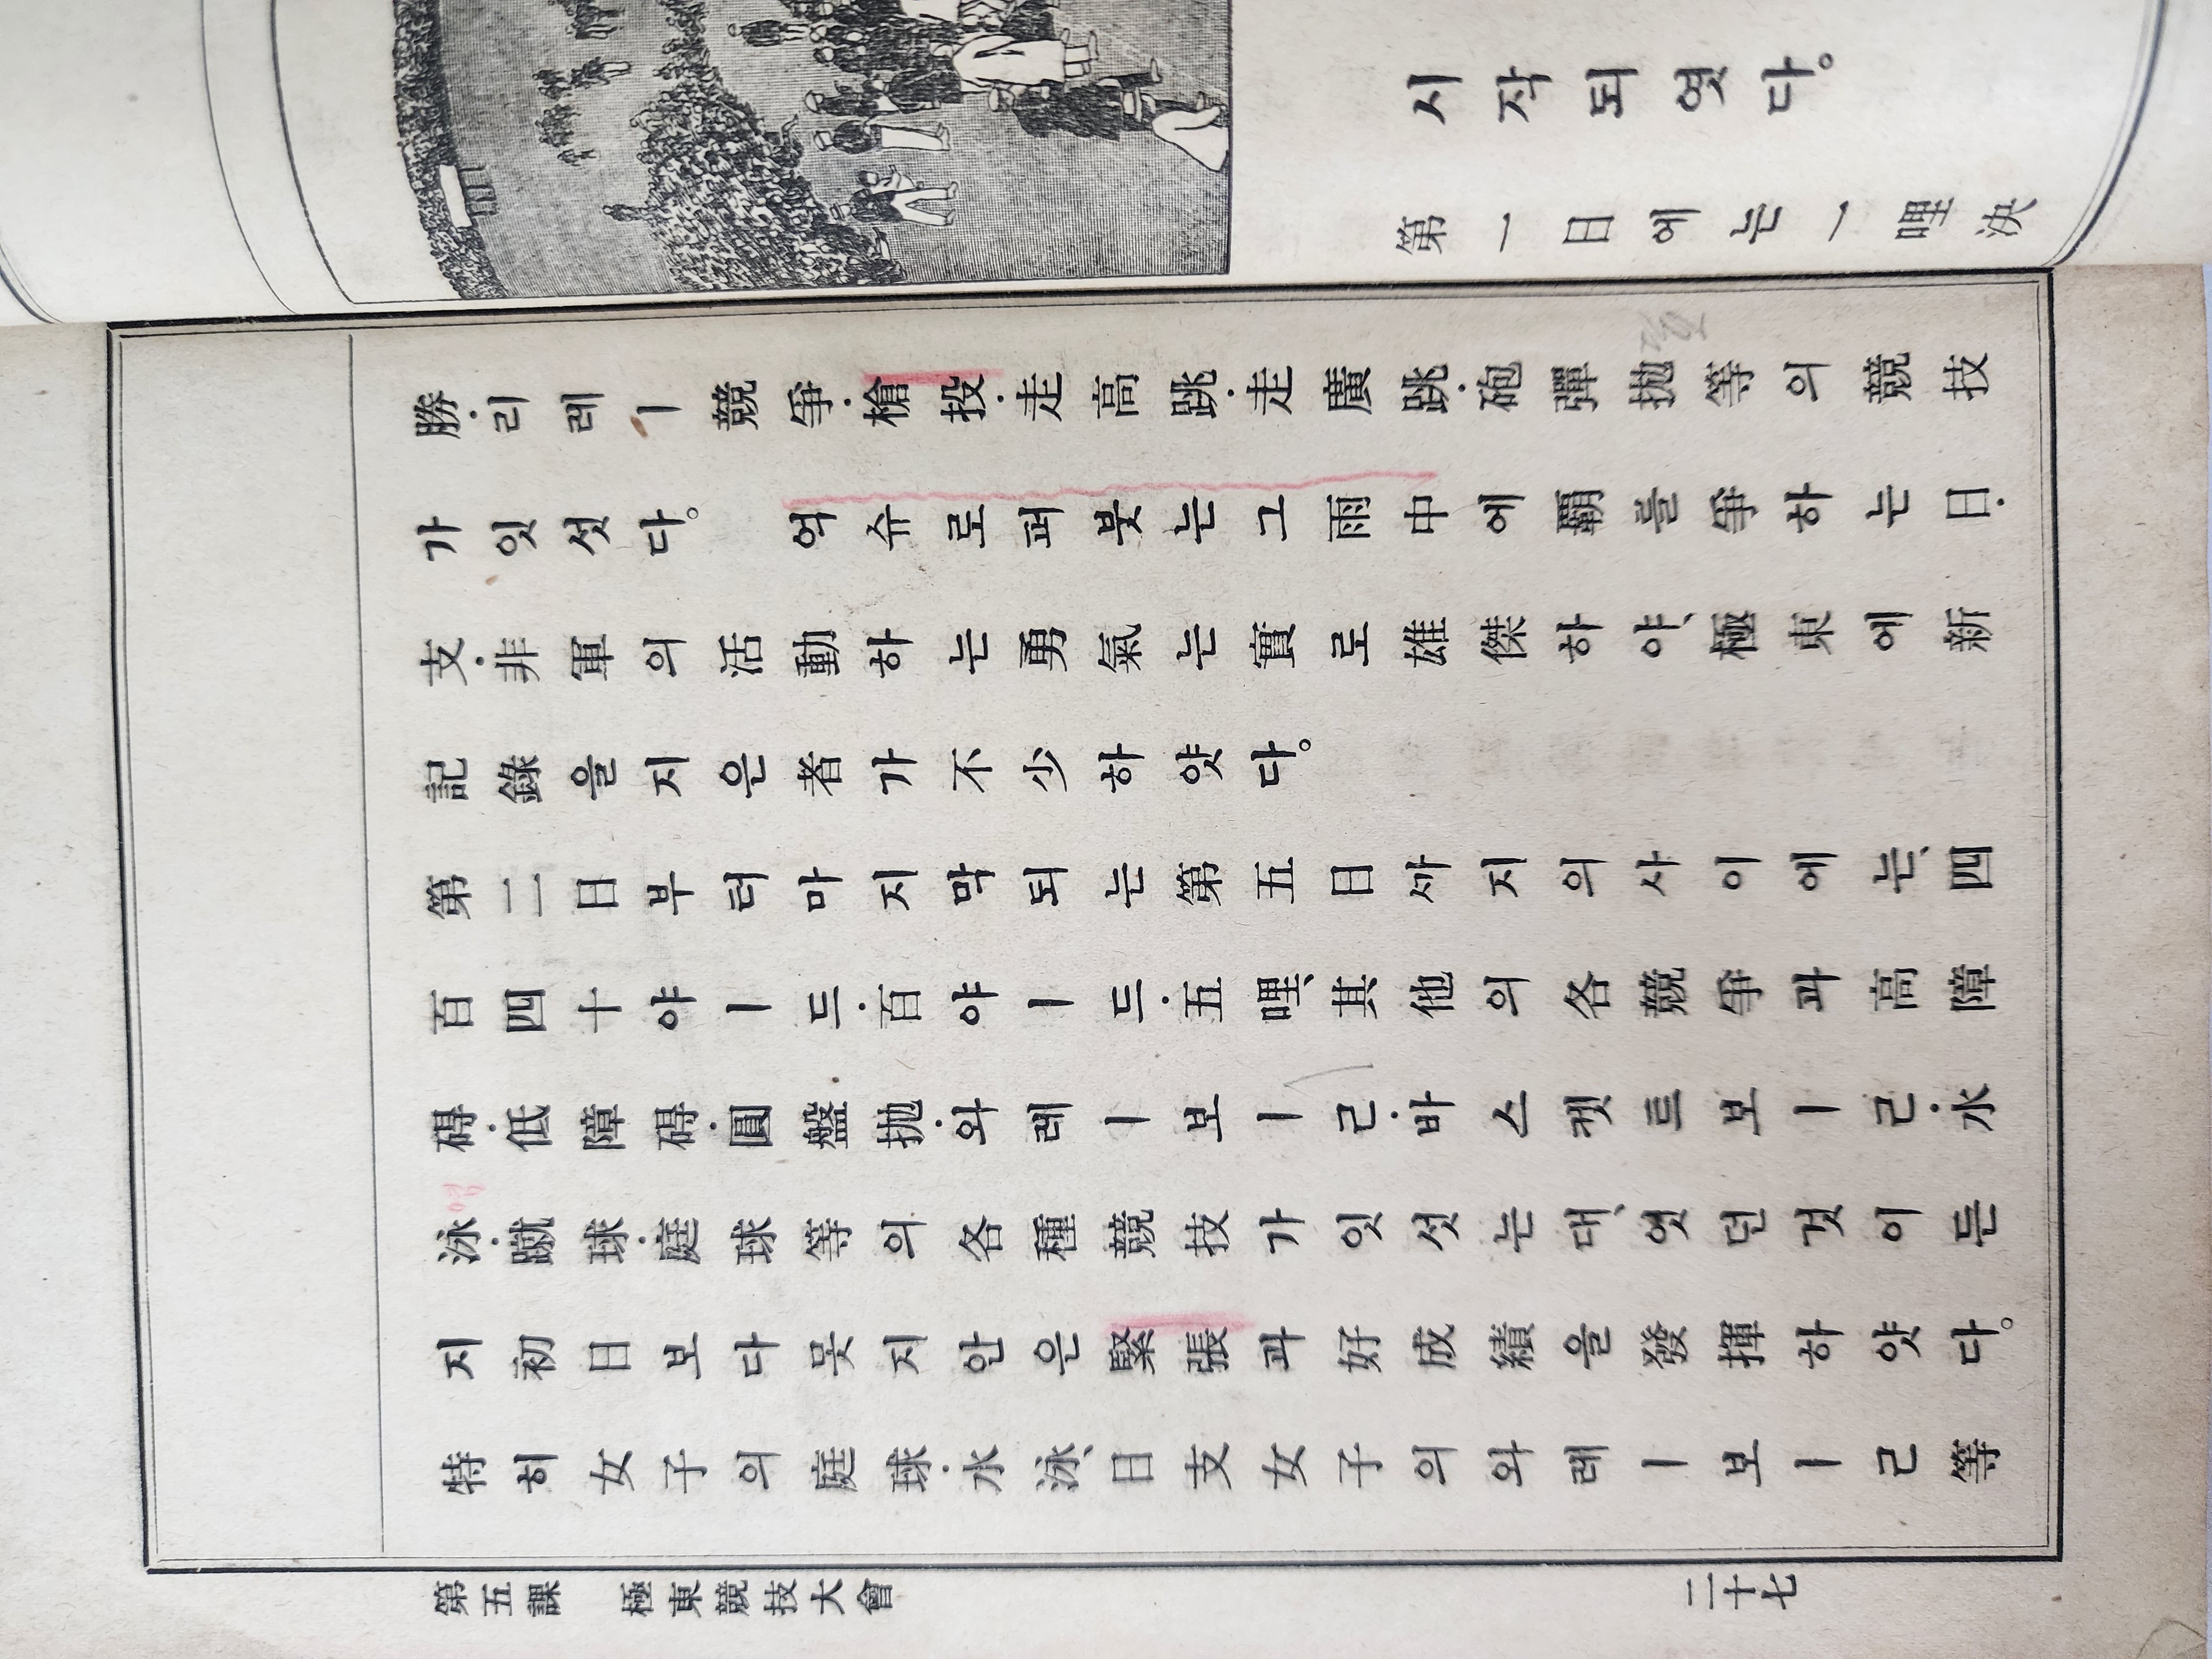 시작되엿다。
第一日에는一哩決
勝·리레ー競爭·槍投·走高跳·走廣跳·砲彈抛等의競技
가잇섯다。 억슈로퍼붓는그雨中에覇를爭하는日·
支·非軍의活動하는勇氣는實로雄傑하야、極東에新
記錄을지은者가不少하얏다。
第二日부터마지막되는第五日ᄭᅡ지의사이에는、四
百四十야ー드·百야ー드·五哩、其他의各競爭과高障
碍·低障碍·圓盤抛·와레ー보ー루·바스켓트보ー루·水
泳·蹴球·庭球等의各種競技가잇섯는대、엇던것이든
지初日보다못지안은緊張과好成績을發揮하얏다。
特히女子의庭球·水泳、日支女子의와레ー보ー루等
第五課 極東競技大會
二十七